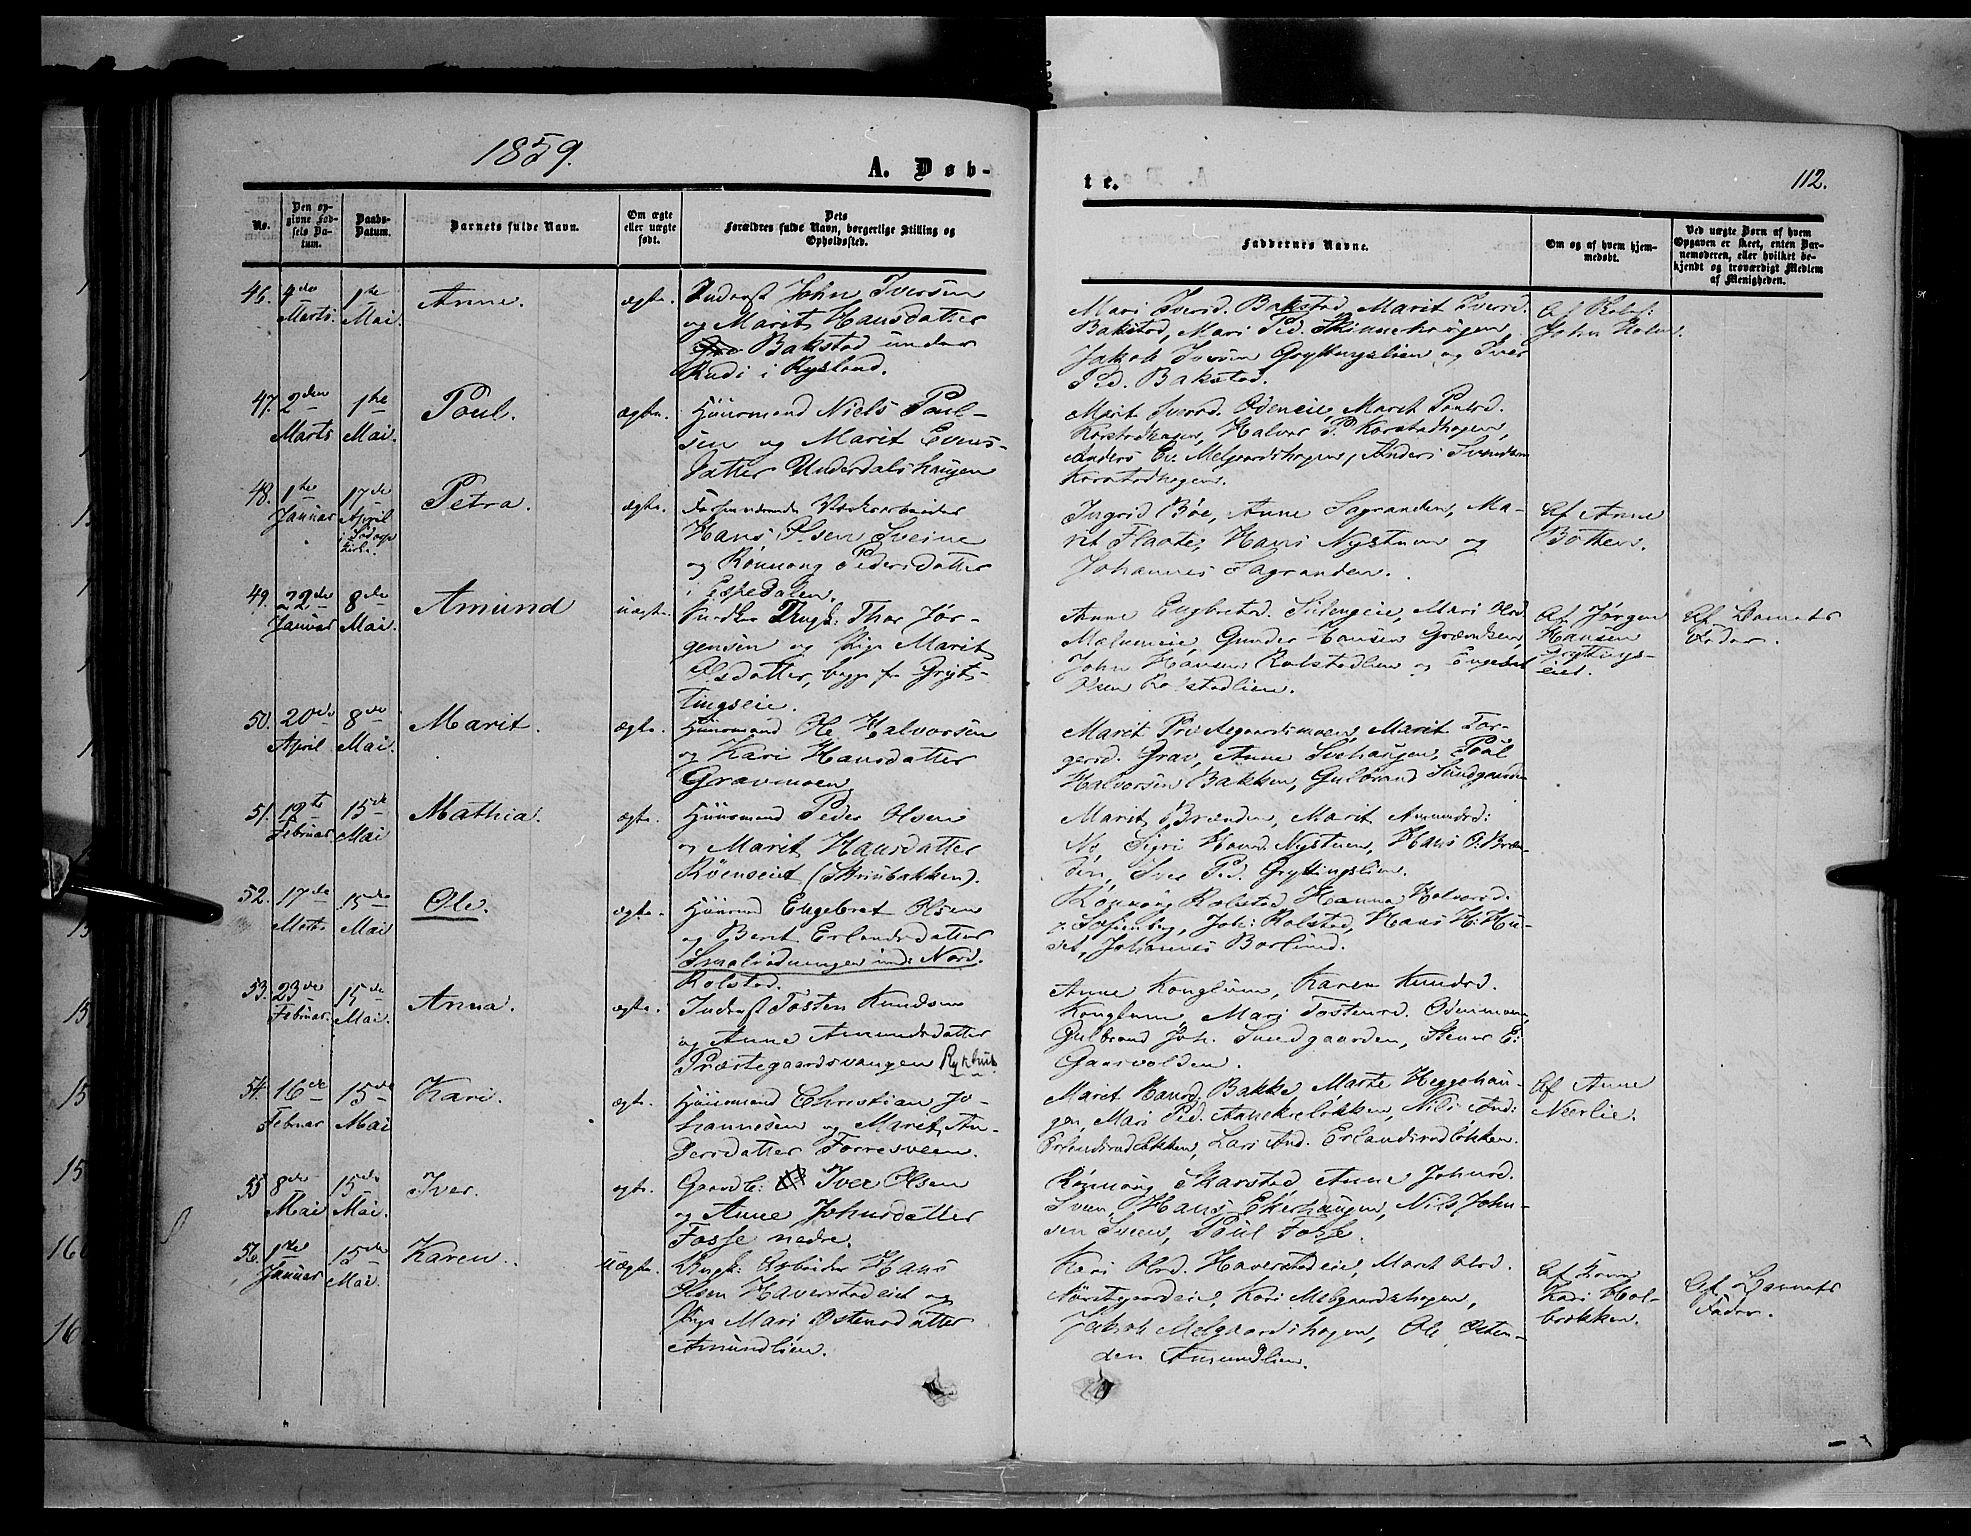 1859.
A. Døb-
te.
112.
No.
Den op-
givne Fød-
sels Da-
tum.
Daabs-
Datum.
Barnets fulde Navn.
Om ægte
eller uægte
født.
Dets
Forældres fulde Navn, borgerlige Stilling og
Opholdssted.
Faddernes Navne.
Om og af hvem hjem-
medøbt.
Ved uægte Børn af hvem
Opgaven er skeet, enten Bar-
nemoderen, eller hvilket be-
kjendt og troværdigt Medlem
af Menigheden.
46. 4de Marts. 1ste Mai. Anne. ægte.
Inderst John Iversen
og Marit Hansdatter
Bakstad under
Rudi i Rysland.
Mari Iversd. Bakstad, Marit Iversd.
Bakstad, Mari Ped. Skinnerhaugen,
Jakob Iversen Gryttingslien og Iver
Ped. Bakstad.
Af
John
47. 2den Marts 1ste Mai. Poul. ægte.
Huusmand Niels Poul-
sen og Marit Evens-
datter Underdalshaugen
Marit Odeneie, Maret Paulsd.
Korstadhagen, Halvor P. Korstadhagen,
Anders Ev. Melgaardshagen, Anders
Korstadhagen.
48. 1ste Januar 17de April i Sødorp Kirke. Petra. ægte.
Forhenværende Værksarbeider
Hans Olsen Sveine
og Rønnoug Pedersdatter
i Espedalen.
Ingrid Bøe, Anne Sagranden, Ma-
rit Flaate, Hans Nystuen og
Johannes Sagranden.
Af Anne
Botten.
49. 22de Januar 8de Mai. Amund uægte.
Ungk: Thor Jør-
gensen og Pige Marit
Olsdatter, begge fra Gryt-
tingseie.
Anne Engbretsd. Mari Olsd
Gunder Hansen
John Hansen Rolstadlien og Engebret
Olsen Rolstadlien.
Af Jørgen
Hansen
Gryttings-
eiet.
Af Barnets
Fader.
50. 20de April 8de Mai. Marit. ægte.
Huusmand Ole Halvorsen
og Kari Hansdatter
Gravmoen
Marit Aegaardsmoen, Marit Tor-
gersd. Grav, Anne Poul
Halvorsen Bakken, Gulbrand Sundgaarden
51. 12te Februar 15de Mai Mathia. ægte.
Huusmand Peder Olsen
og Marit Hansdatter
Røenseiet (Skriubakken).
Marit Brænden, Marit Amundsd:
Sigri Hansd. Nystuen, Hans O. Bræn-
den, Iver Ped. Gryttingslien.
52. 17de Marts 15de Mai. Ole. ægte
Huusmd Engebret Olsen
og Berit Erlandsdatter
Smalrødningen und: Nord.
Rolstad.
Rønnoug Rolstad, Hanna Halvorsd.
Joh: Rolstad, Hans H. Hu-
set, Johannes Borlund.
53. 23de Februar. 15de Mai. Anna. ægte.
Inderst Tosten Knudsen
og Anne Amundsdatter
Præstegaardsvangen Rykhus
Anne Konglum, Karen Knudsd.
Konglum, Mari Tostensd. Odenmoen,
Gulbrand Joh. Sundgaarden, Stener E:
Gaarvolden.
54. 16de Februar 15de Mai Kari. ægte.
Huusmand Christian Jo-
hannesen og Maret An-
dersdatter Forresveen.
Maret Hansd. Bakke, Marte Heggehau-
gen, Mari Ped. Annekreløkken, Nils And:
Erlandsrudløkken, Lars And. Erlandsrudløkken.
Af Anne
Nærlie.
55 8de Mai 15de Mai. Iver. ægte.
Gaardb: Iver Olsen
og Anne Johnsdatter
Fosse nedre.
Rønnoug Skarstad Anne Johnsd.
Sveen, Hans Ekerhaugen, Nils John-
sen Sveen, Poul Fosse.
56. 1ste Januar 15de Mai. Karen. uægte.
Ungk: Arbeider Hans
Olsen Haverstadeiet og
Pige Mari Østensdatter
Amundlien.
Kari Olsd. Haverstadeie, Maret Olsd.
Nørstegaardeie, Kari Melgaardshagen,
Jakob Melgaardshagen, Ole Østen-
den Amundlien.
Af Kone
Kari Hol-
brækken.
Af Barnets
Fader.